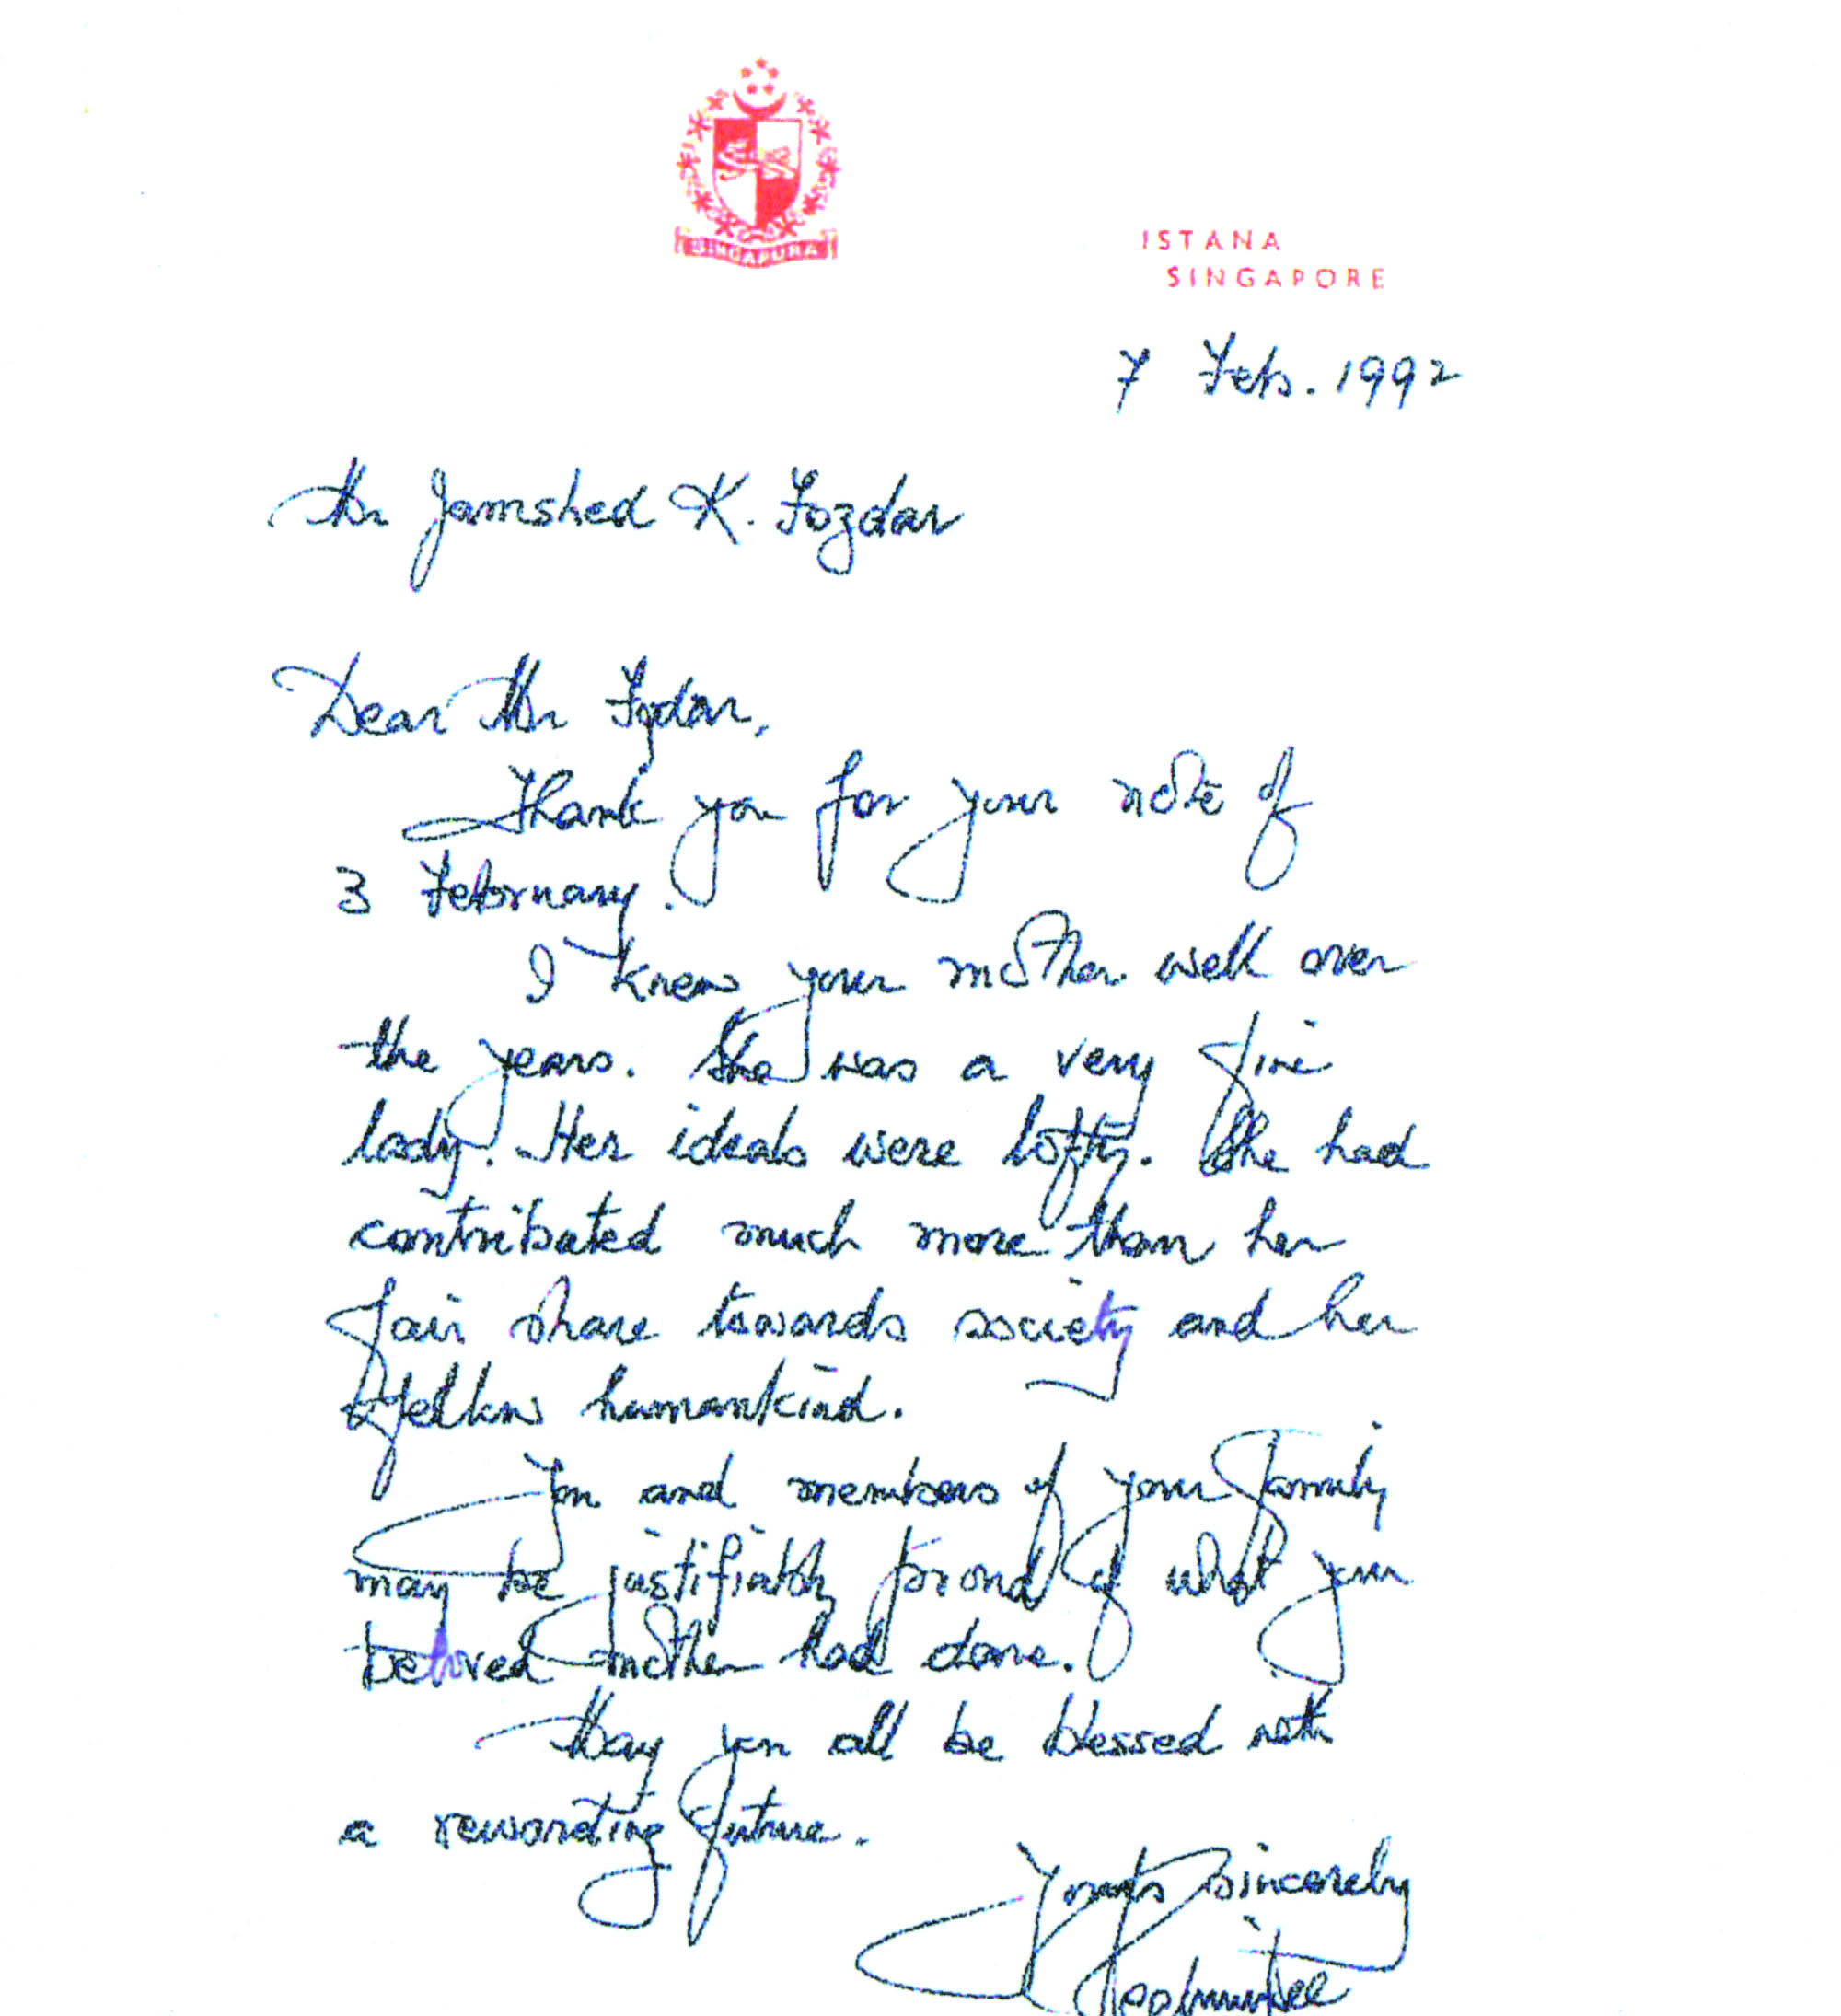 SINGAPURA
ISTANA
SINGAPORE
7 Feb. 1992
Mr Jamshed K. Fozdar
Dear Mr Fozdar,
Thank you for your note of
3 February.
I knew your mother well over
the years. She was a very fine
lady. Her ideals were lofty. She had
contributed much more than her
fair share towards society and her
fellow humankind.
You and members of your family
may be justifiably proud of what your
beloved mother had done.
May you all be blessed with
a rewarding future.
Yours sincerely